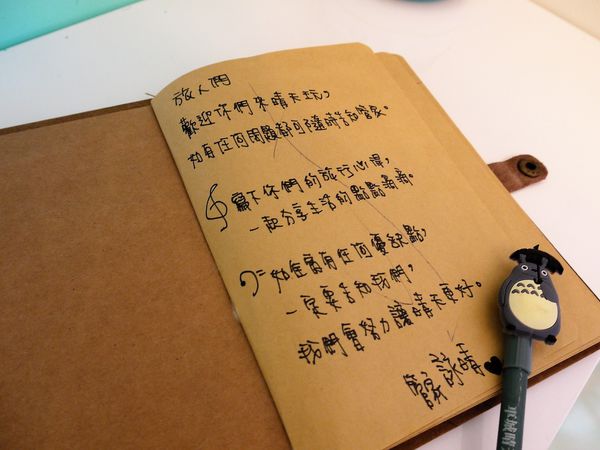 旅人們
歡迎你們來晴天玩,
如有任何問題都可隨時告知管家。
寫下你們的旅行心得,
一起分享生活的點點滴滴。
如有任何優缺點,
一定要告知我們,
我們會努力讓晴天更好。
管家 詠晴♥